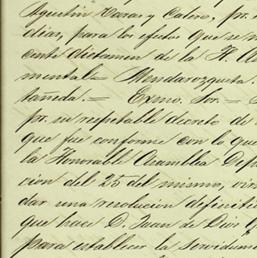 Agustin Caras y Calero, pr. n
dias, para los efectos que se n
cente dictamen de la H. As
mental = Mendarozqueta.
tañeda. = Exmo. Sor. =
pr. su respetable decreto de
que fue conforme con lo que
la Honorable Asamblea Dep
cion del 25 del mismo, vin
dar una resolucion definiti
que hace D. Juan de Dios
para establecer la servidum